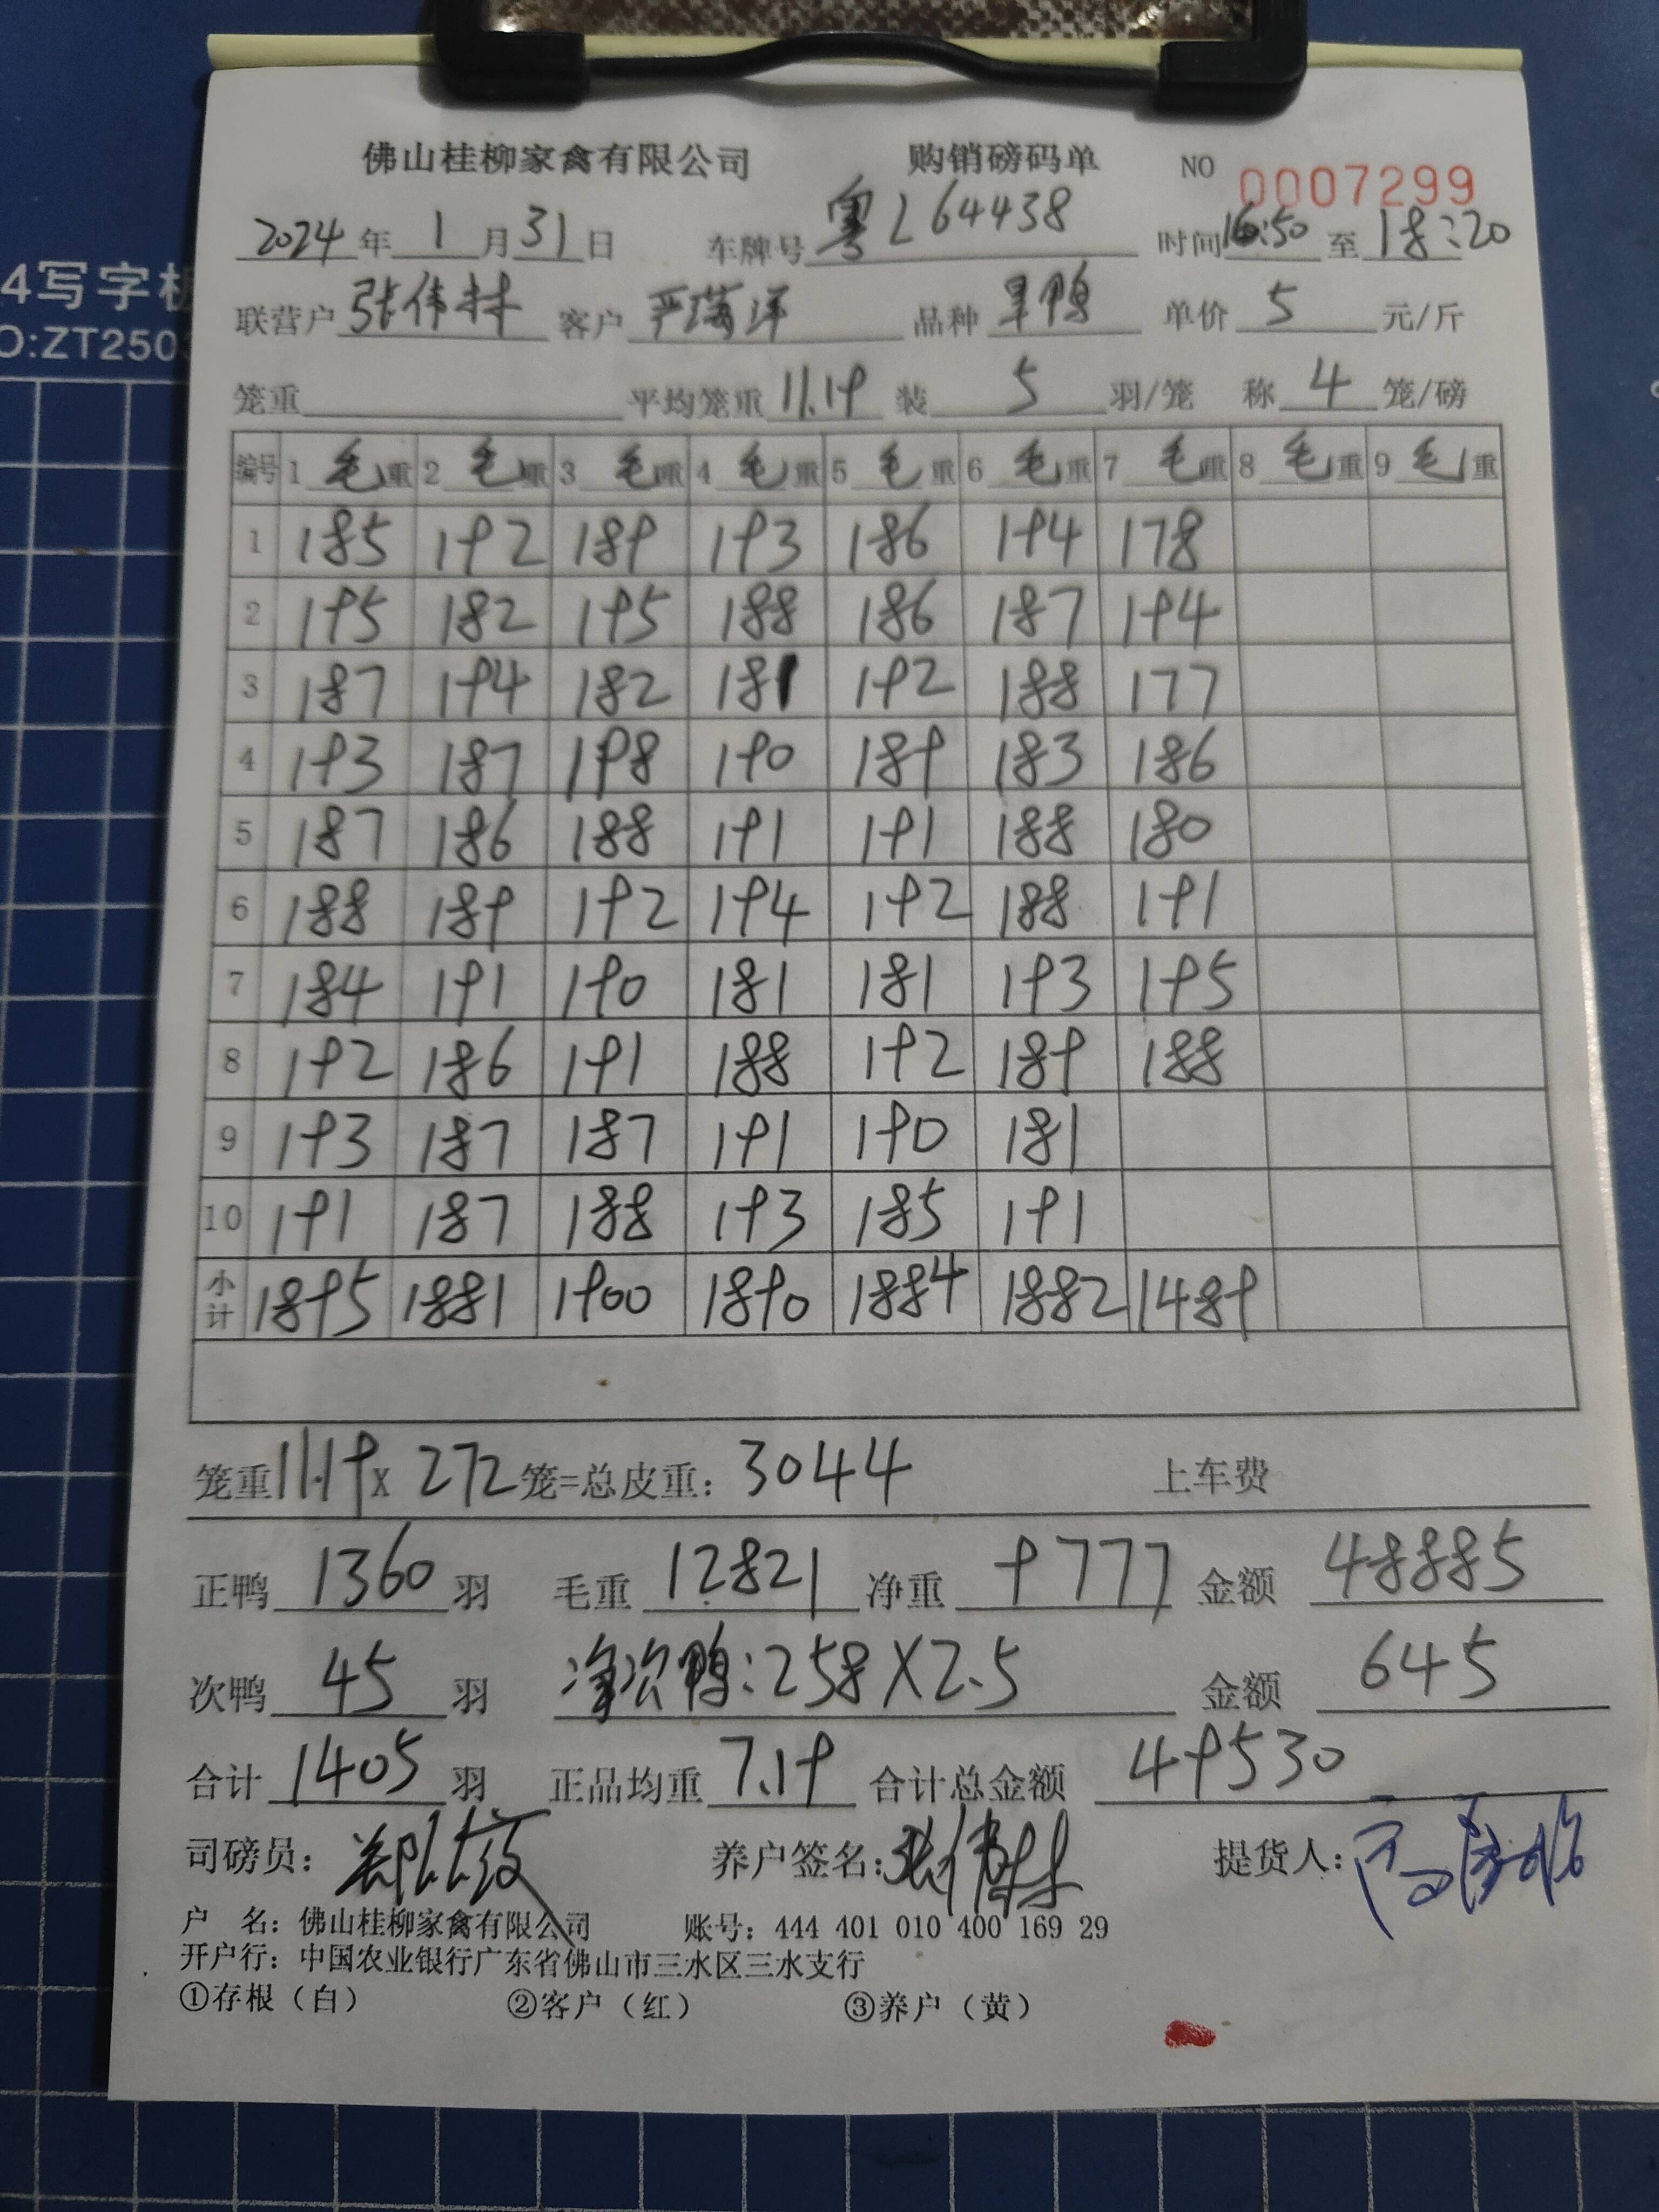 4写字板
O:ZT250
佛山桂柳家禽有限公司 购销磅码单 NO 0007299
2024年1月31日 车牌号 粤L64438 时间16:50至18:20
联营户 张伟林 客户 严满洋 品种 旱鸭 单价 5 元/斤
笼重 平均笼重 11.19 装 5 羽/笼 称 4 笼/磅
编号 1 毛重 2 毛重 3 毛重 4 毛重 5 毛重 6 毛重 7 毛重 8 毛重 9 毛重
1 185 192 189 193 186 194 178
2 195 182 195 188 186 187 194
3 187 194 182 181 192 188 177
4 193 187 198 190 189 183 186
5 187 186 188 191 191 188 180
6 188 189 192 194 192 188 191
7 184 191 190 181 181 193 195
8 192 186 191 188 192 189 188
9 193 187 187 191 190 181
10 191 187 188 193 185 191
小计 1895 1881 1900 1890 1884 1882 1489
笼重11.19x 272笼=总皮重: 3044 上车费
正鸭 1360 羽 毛重 12821 净重 9777 金额 48885
次鸭 45 羽 净次鸭:258X2.5 金额 645
合计 1405 羽 正品均重 7.19 合计总金额 49530
司磅员: 养户签名:张伟林 提货人:
户 名: 佛山桂柳家禽有限公司 账号: 444 401 010 400 169 29
开户行: 中国农业银行广东省佛山市三水区三水支行
①存根（白） ②客户（红） ③养户（黄）